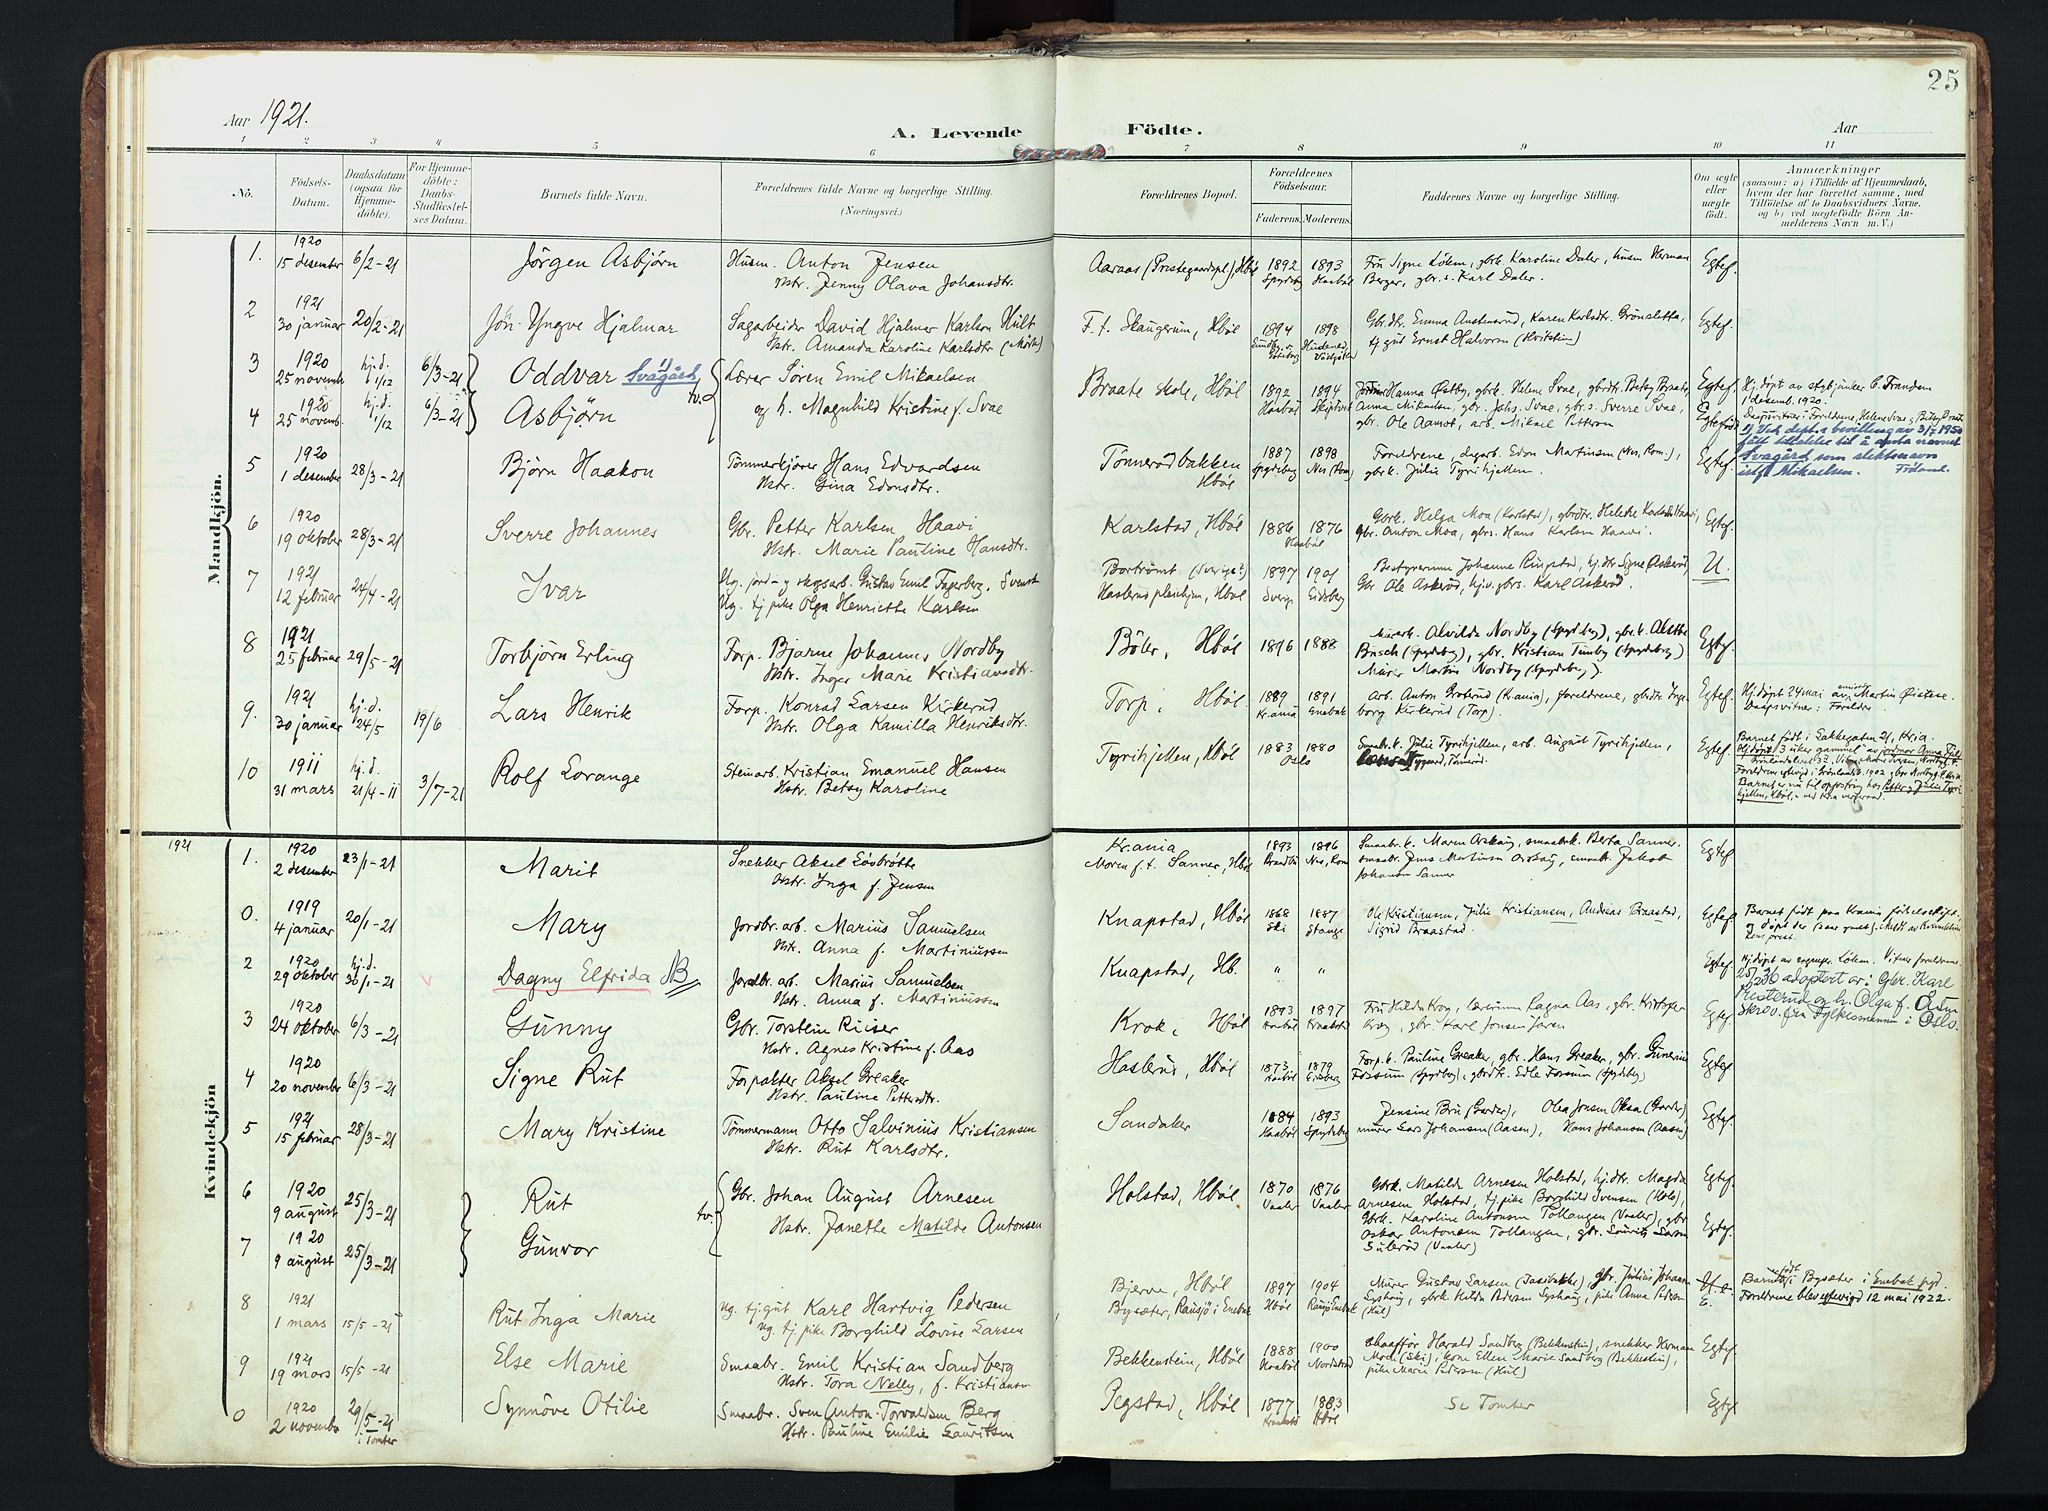 25
Aar 1921.
A. Levende Födte.
Aar
1 2 3 4 5 6 7 8 9 10 11
No.
Födsels-Datum.
Daabsdatum (ogsaa for Hjemme-döbte).
For Hjemme-döbte: Daabs-Stadfæstel-ses Datum.
Barnets fulde Navn.
Forældrenes fulde Navne og borgerlige Stilling.
(Næringsvei.)
Forældrenes Bopæl.
Forældrenes Födselsaar.
Faderens. Moderens.
Faddernes Navne og borgerlige Stilling.
Om ægte eller uægte födt.
Anmærkninger
(saasom: a) i Tilfælde af Hjemmedaab, hvem der har forrettet samme, med Tilföielse af to Daabsvidners Navne, og b) ved uægtefödte Börn An-melderens Navn m. V.)
Mandkjön.
1. 1920 15 desember 6/2-21 Jörgen Asbjörn Husm. Anton Jensen
Hstr. Jenny Olava Johansdtr.
Aaraas (Prestegaardspl.) Hböl 1892 Spydeb 1893 Haaböl Fru Signe Lökem, gbrk. Karoline Daler, husm Herman
Berger, gbr. s. Karl Daler. Egtef.
2 1921 30 januar 20/2-21 Jön Yngve Hjalmar Sagarbeider David Hjalmar Karlsen Hult
Hstr. Amanda Karoline Karlsdtr
F. t. Skaugerum, Hböl 1894 1898 Gbr.dtr. Emma Austensrud, Karen Karlsdtr. Grönsletta,
tj. gut Ernst Halvorsen (Hvitstein) Egtef.
3 1920 25 novemb hj.d. 1/12 6/3-21 Oddvar Svagård 1) Lærer Sören Emil Mikaelsen
4 1920 25 novemb. hj.d. 1/12 6/3-21 Asbjörn tv. og h. Magnhild Kristine f. Svae
Braate skole, Hböl 1892 Haaböl 1894 Skiptvet Hanna Østby, gbrk. Helene Svae, gbrdtr. Betsy Braate,
Anna Mikaelsen, gbr. Johs. Svae, gbr. s. Sverre Svae,
gbr. Ole Aamot, arb. Mikael Petterson
Egtef. Hj. döpt av sykepleierske C. Frandsen
1 desemb. 1920.
1) Ved dept.s bevilling av 3/7 1950
fått tillatelse til å anta navnet
Svagård som slektsnavn
istf. Mikaelsen.
5 1920 1 desember 28/3-21 Björn Haakon Tömmerkjörer Hans Edvardsen
Hstr. Gina Edonsdtr.
Tönnerödbakken Hböl 1887 Spydeberg 1898 Nes (Rom.) Foreldrene, dagarb. Edon Martinsen (Nes, Rom.),
gbrk. Julie Tyrihjellen. Egtef.
6 1920 19 oktober 28/3-21 Sverre Johannes Gbr. Petter Karlsen Haavi
Hstr. Marie Pauline Hansdtr.
Karlstad, Hböl 1886 1876 Haaböl Gbrk. Helga Moa (Karlstad), gbrdtr. Helene Karlsdtr Haavi,
gbr. Anton Moa, gbrs. Hans Karlsen Haavi. Egtef.
7 1921 12 februar 24/4-21 Ivar Ug. jord- og skogsarb. Gustav Emil Fagerberg, Svensk
Ug. tj. pike Olga Henriette Karlsen
Bortrömt (Sverige?) Haslerud pleiehjem, Hböl 1897 Sverige 1901 Eidsberg Bestyrerinne Johanne Ringstad, hj.dtr Signe Askeröd,
Gbr. Ole Askeröd, hj.v. gbrs. Karl Askeröd. U.
8 1921 25 februar 29/5-21 Torbjörn Erling Forp. Bjarne Johannes Nordby
Hstr. Inger Marie Kristiansdtr.
Böler, Hböl 1896 1888 Murerk. Alvilda Nordby (Spydeberg), gbr.k. Alette
Busch (Spydeberg), gbr. Kristian Timby (Spydeberg)
Murer Martin Nordby (Spydeberg). Egtef.
9. 1921 30 januar hj.d. 24/5 19/6 Lars Henrik Forp. Konrad Larsen Kirkerud
Hstr. Olga Kamilla Henriksdtr.
Torp, Hböl 1889 Kr.ania 1891 Enebak arb. Anton Groterud (Kr.ania), foreldrene, gbrdtr. Inge-
borg Kirkerud (Torp). Egtef. Hj. döpt 24 mai av Martin Øistese.
Daapsvitner: Foreldre.
10 1911 31 mars hj.d. 21/4-11 3/7-21 Rolf Lorange Steinarb. Kristian Emanuel Hansen
Hstr. Betsy Karoline
Tyrihjellen, Hböl 1883 1880 Oslo Smaabr.k. Julie Tyrihjellen, arb. August Tyrihjellen,
Egtef. Barnet födt i Lakkegaten 21, Kria.
Hj. döpt 3 uker gammel av jordmor Anna
Barnet er nu til oppostring hos Petter og Julie Tyri-
hjellen, Hböl,
Kvindekjön
1921
1. 1920 2 desember 23/1-21 Marit Snekker Aksel Lösbrötte
Hstr. Inga f. Jensen
Kr.ania Moren f.t. Sanner, Hböl 1893 1896 Nes, Rom Smaabr.k. Maren Aaskaug, smaabrk. Berta Sanner,
smaabr. Jens Martinsen Aaskaug, smaabr. Jakob
Johansen Sanner Egtef.
0. 1919 4 januar 20/1-21 Mary Jordbr. arb. Marius Samuelsen
Hstr. Anna f. Martiniussen
Knapstad, Hböl 1868 Ski 1887 Stange Ole Kristiansen, Julie Kristiansen, Andreas Braastad,
Sigrid Braastad. Egtef. Barnet födt paa Kr.ania födselsstift.
og döpt der
2 1920 29 oktober hj.d. 30/1-21 Dagny Elfrida NB Jordbr. arb. Marius Samuelsen
Hstr. Anna f. Martiniussen
Knapstad, Hb. " " Egtef. Hj. döpt av sogneprest Lökem. Vitner foreldrene.
25/2 36 adoptert av: gbr. Karl
Presterud og h. Olga f. Åsen
Skrov. fra Fylkesmannen i Oslo.
3 1920 24 oktober 6/3-21 Gunny Gbr. Torstein Riiser
Hstr. Agnes Kristine f. Aas
Krok, Hböl 1893 Haaböl 1897 Kraakstad Fru Hilda Krog, lærerinne Ragna Aas, gbr. Kristofer
Krog, gbr. Karl Jonsen Jaren Egtef.
4 1920 20 novembr 6/3-21 Signe Rut Forpakter Aksel Greaker
Hstr. Pauline Pettersdtr.
Haslerud, Hböl 1873 Haaböl 1879 Eidsberg Forp.k. Pauline Greaker, gbr. Hans Greaker, gbr. Gunerius
Forsum (Spydeberg), gbrdtr. Edle Forsum (Spydeberg) Egtef.
5 1921 15 februar 28/3-21 Mary Kristine Tömmermann Otto Salvinius Kristiansen
Hstr. Rut Karlsdtr.
Sandaker 1884 Haaböl 1893 Spydeberg Jensine Bru (Garder), Olea Jonsen Oksa (Garder)
murer Lars Johansen (Aasen), Hans Johansen (Aasen) Egtef.
6 1920 9 august 25/3-21 Rut Gbr. Johan August Arnesen
7 1920 9 august 25/3-21 Gunvor tv. Hstr. Janette Matilde Antonsen
Holstad, Hböl 1870 Vaaler 1876 Vaaler Gbrk. Matilde Arnesen Holstad, hj.dtr. Magda
Arnesen Holstad, tj. pike Borghild Svensen (Hobö),
Gbrk. Karoline Antonsen Tollangen (Vaaler), gbr
Oskar Antonsen Tollangen, gbr. Lauritz Larsen
Suleröd (Vaaler) Egtef. Egtef.
8 1921 1 mars 15/5-21 Rut Inga Marie Ug. tj.gut Karl Hartvig Pedersen
Ug. tj. pike Borghild Lovise Larsen
Bjerva, Hböl
Bysæter, Rausjö i Enebak 1897 Hböl 1904 Rausjö Enebak Murer Gustav Larsen, gbr. Julius Johansen
gbrk. Hulda Pedersen, pike Anna Pedersen
Barnet födt i Bysæter i Enebak pgd.
Foreldrene blev egtevigd 12 mai 1922.
9 1921 19 mars 15/5-21 Else Marie Smaabr. Emil Kristian Sandberg
Hstr. Tora Nelly, f. Kristiansen
Bekkenstein, Hböl 1888 Haaböl 1900 Nordstrand Chaufför Harald Sandberg (Bekkenstein), snekker Herman
Moen (Ski), kone Ellen Marie Sandberg (Bekkestein),
pike Marie Pedersen (Hböl) Egtef.
0 1920 2 november 29/5-21 i Tomter Synnöve Otilie Smaabr. Sven Anton Torvaldsen Berg
Hstr. Pauline Emilie Lauritsen
Pegstad, Hböl 1877 Kraakstad 1883 Hböl Se Tomter Egtf